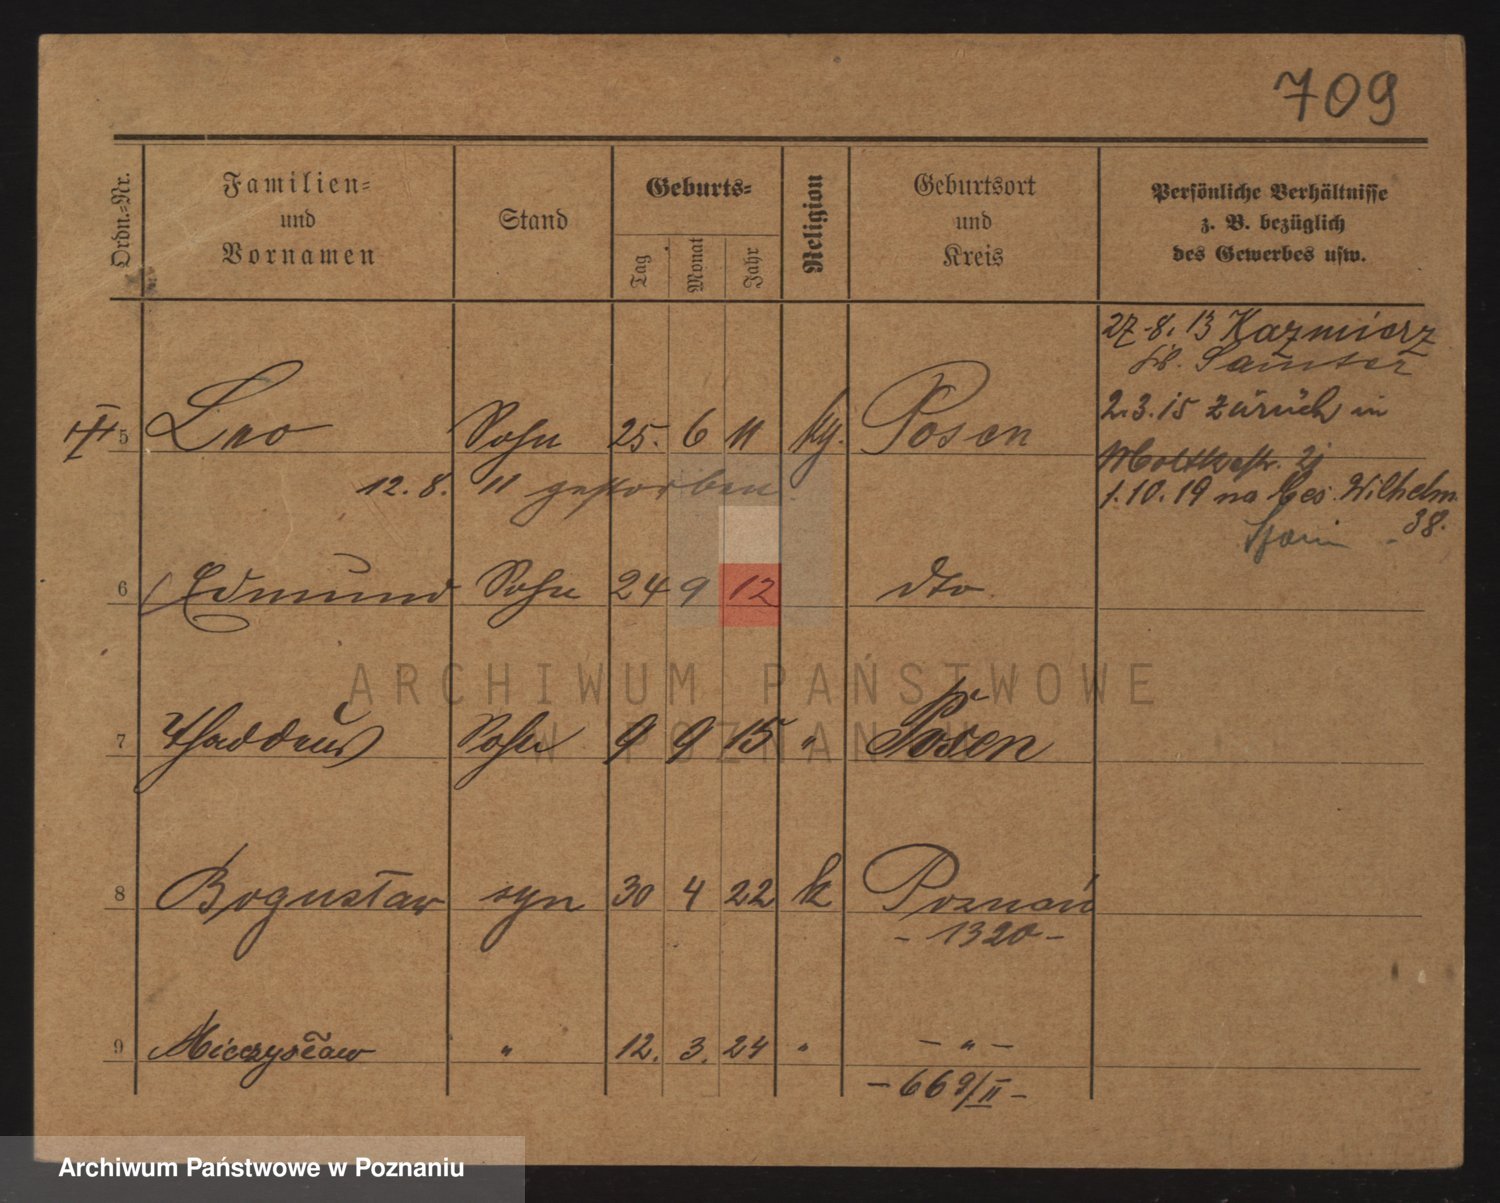 709
Ordn.-Nr.
Familien-
und
Vornamen
Stand
Geburts-
Tag
Monat
Jahr
Religion
Geburtsort
und
Kreis
Persönliche Verhältnisse
z. B. bezüglich
des Gewerbes usw.
27.8.13 Kazmierz
Kr. Samter
2.3.15 zurück in
Moltkestr. 21
1.10.19 na Ces. Wilhelm.
38.
5 Leo Sohn 25. 6 11 kg. Posen
12. 8. 11 gestorben.
6 Edmund Sohn 24 9 12 dto
7 Thaddeus Sohn 9 9 15 " Posen
8 Bogusław syn 30 4 22 k Poznań
- 1320 -
9 Mieczysław " 12. 3. 24 " - " -
- 669/II -
ARCHIWUM PAŃSTWOWE
W POZNANIU
Archiwum Państwowe w Poznaniu